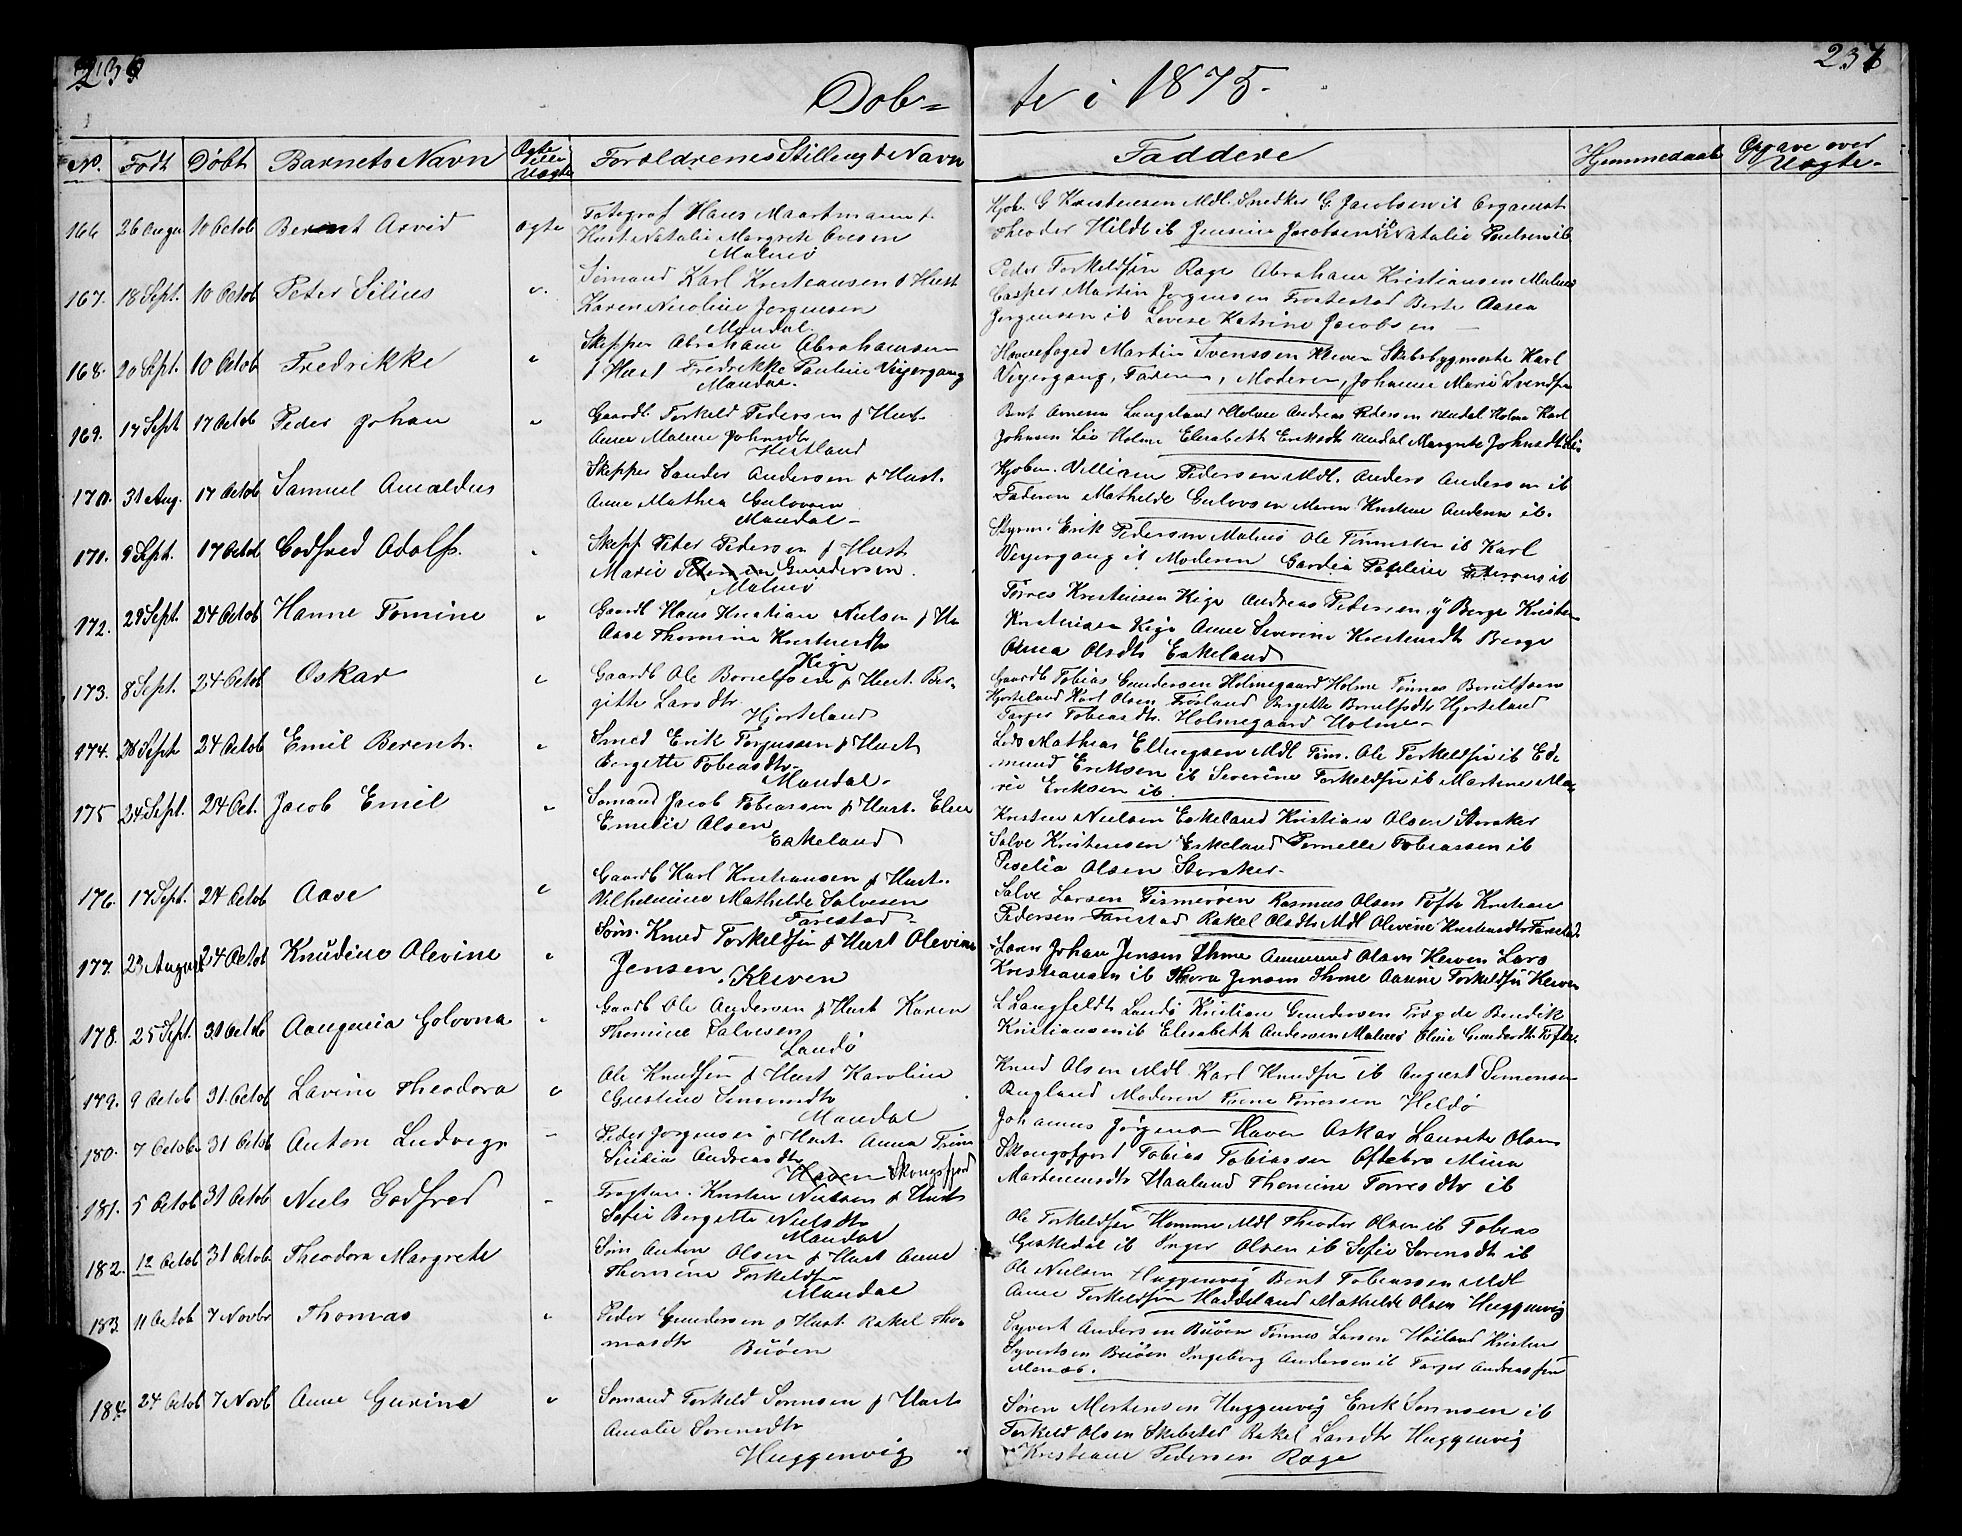 236
237
Døb-
te i 1875.
No. Født Døbt Barnets Navn Ægte eller Uægte Foræld­renes Stilling & Navn Faddere Hjemmedaab Opgave over Uægte
166 26 Augu 10 Octob Berent Arvid ægte Fotograf Hans Maartmann &
Hust Natalie Margrete Ovesen
Malmø
Kjøb. G Kristensen Mdl. Snedker G. Jacobsen ib Organist
Theodor Hildt ib Jensine Jacobsen ib Natalie Poulsen ib
167. 18 Sept. 10 Octob Peter Silius
Sømand Karl Kristiansen & Hust
Karen Nicoline Jørgensen
Mandal
Peder Torkeldsen Røge Abraham Kristiansen Malmø
Casper Martin Jørgensen Frostestad Berte Aasea
Jørgensen ib Lovise Katrine Jacobsen
168. 20 Sept. 10 Octob Fredrikke
Skipper Abraham Abrahamsen
& Hust Fredrikke Pauline Weyergang
Mandal.
Havnefoged Martin Svensson Kleven Skibsbygmester Karl
Weyergang, Faderen, Moderen, Johanne Marie Svendsen
169. 14 Sept 17 Octob Peder Johan
Gaardb. Torkeld Pedersen & Hust.
Anne Malene Johnsdtr
Hestland
Bent Arnesen Langeland Holme Andreas Petersen Undal Holme Karl
Johnsen Lie Holme Elisabeth Eriksdtr Undal Margrete Johnsdtr Lie
170. 31 Aug. 17 Octob Samuel Amaldus
Skipper Sander Andersen & Hust.
Anne Mathea Gulovsen
Mandal
Kjøbm. Villiam Pedersen Mdl. Anders Andersen ib
Faderen Mathilde Gulovsen Maren Kristine Andersen ib.
171. 9 Sept. 17 Octob Godfred Adolf.
Skipp Peter Pedersen & Hust
Marie Gundersen.
Malmø
Styrm. Erik Pedersen Malmø Ole Tønnesen ib Karl
Weyergang ib Moderen Gardia Pauline Petersens ib
172. 29 Sept. 24 Octob Hanne Tomine
Gaardb Hans Kristian Nielsen & Hu
Aase Thomine Kristensdtr
Kige
Tørres Kristensen Kige Andreas Petersen Berge Kristen
Kristensen Kige Anne Severine Kristensdtr Berge
Anna Olsdtr Eskeland
173. 8 Sept. 24 Octob Oskar
Gaardb Ole Borulfsen & Hust. Ber-
gitte Larsdtr
Hjorteland
Gaardb Tobias Gundersen Holmegaard Holme Tønnes Borulfsen
Hjorteland Karl Olsen Frøsland Birgitte Borulfsdtr Hjorteland
Torger Tobiasdtr. Holmegaard Holme
174. 28 Sept 24 Octob Emil Berent.
Smed Erik Torjussen & Hust
Bergitte Tobiasdtr
Mandal.
Lods Mathias Ellingsen Mdl Tøm. Ole Torkeldsen ib Ed-
mund Eriksen ib Severine Torkeldsen ib Martine Ma-
rie Eriksen ib.
175 24 Sept. 24 Oct. Jacob Emil
Sømand Jacob Tobiassen & Hust. Elen
Emilie Olsen
Eskeland
Kristen Nielsen Eskeland Kristian Olsen Storaker
Salve Kristensen Eskeland Pernelle Tobiassen ib
Olsen Storaker
176. 17 Sept. 24 Octob Aase
Gaardb Karl Kristiansen & Hust.
Vilhelmine Mathilde Salvesen
Farestad
Salve Larsen Gismerøen Rasmus Olsen Tofte Kristian
Pedersen Farestad Rakel Olsdtr Mdl Olevine Kristensdtr Farestad
177. 23 August 24 Octob Knudine Olevine
Søm. Knud Torkeldsen & Hust Olevine
Jensen Kleven
Johan Jensen Ihme Ammund Olsen Kleven Lars
Kristiansen ib Thora Jensen Ihme Aasine Torkeldsen Kleven
178. 25 Sept. 31 Octob Aangenia Golovna
Gaardb Ole Andersen & Hust Karen
Thomine Salvesen
Landø
L Langfeldt Landø Kristian Gundersen Tregde Bendik
Kristiansen ib Elisabeth Andersen Malmø Oline Gundersdtr Tofte.
179. 9 Octob 31. Octob Lavine Theodora
Ole Knudsen & Hust Karoline
Gustine Simonsdtr
Mandal
Knud Olsen Mdl Karl Knudsen ib August Simonsen
Rugland Moderen Torressen Heldø
180. 7 October 31 Octob Anton Ludvig
Peder Jørgensen & Hust. Anna Trine
Andreasdtr
Skongsfjord
Johannes Jørgens Haven Oskar Laurits Olsen
Skongsfjord Tobias Tobiassen Oftebro Mina
Mortensdtr Haaland Thomine Torresdtr ib
181. 5 Octob 31 Octob Niels Godfred
Kristen Nielsen & Hust
Sofie Bergitte Nielsdtr
Mandal
Ole Torkeldsen Homme Mdl Theodor Olsen ib Tobias
Giskedal ib Inger Olsen ib Sofie Sørensdtr ib
182. 12 Octob 31 Octob Theodora Margrete
Søm Anton Olsen & Hust Anne
Thomine Torkeldsen
Mandal
Ole Nielsen Huggenvig Bent Tobiassen Mdl
Anne Torkeldsen Haddeland Mathilde Olsen Huggenvig
183 11 Octob 7 Novbr Thomas
Peder Gundersen & Hust Rakel Tho-
masdtr
Buøen
Syvert Andersen Buøen Tønnes Larsen Høiland Kristen
Syvertsen Buøen Ingeborg Andersen ib Torger Andreassen
184. 24 Octob 7 Novb Anne Gurine
Sømand Torkeld Sørensen & Hust
Amalie Sørensdtr
Huggenvig
Søren Mortensen Huggenvig Erik Sørensen ib
Torkeld Olsen Skibsted Rakel Larsdtr Huggenvig
Kristiane Pedersen Røge